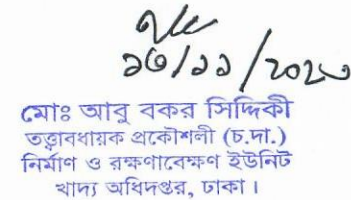 ১৩/১১/২০২৩
মোঃ আবু বকর সিদ্দিকী
তত্ত্বাবধায়ক প্রকৌশলী (চ.দা.)
নির্মাণ ও রক্ষণাবেক্ষণ ইউনিট
খাদ্য অধিদপ্তর, ঢাকা।